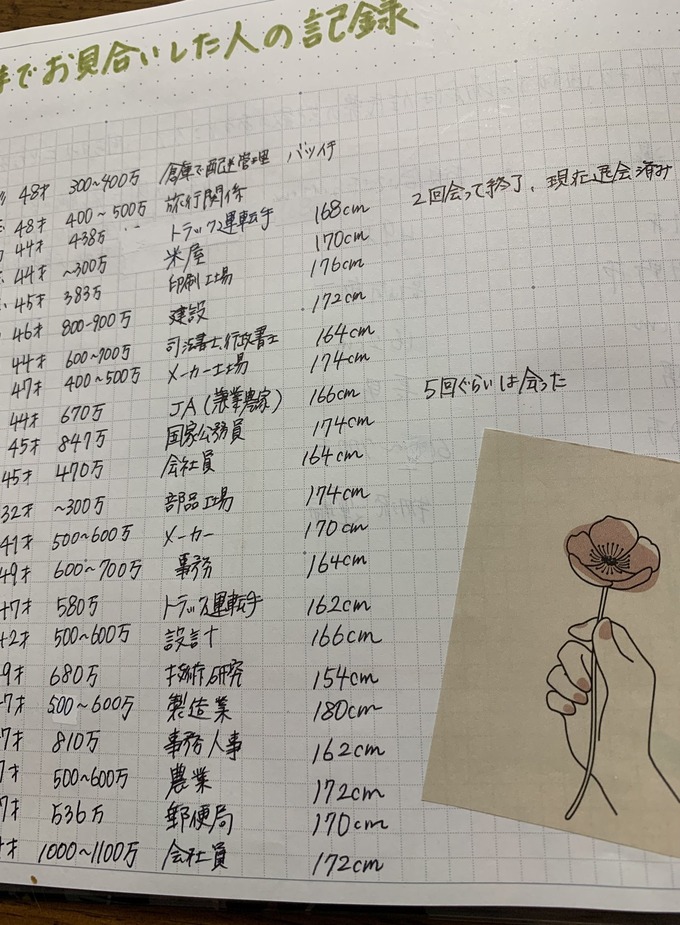 でお見合いした人の記録
48才 300~400万 倉庫で配送管理 バツイチ
48才 400~500万 旅行関係 2回会って終了、現在退会済み
44才 438万 トラック運転手 168cm
44才 ~300万 米屋 170cm
45才 383万 印刷工場 176cm
46才 800-900万 建設 172cm
44才 600~700万 司法書士、行政書士 164cm
47才 400~500万 メーカー工場 174cm
44才 670万 JA(兼業農家) 166cm 5回ぐらいは会った
45才 847万 国家公務員 174cm
45才 470万 会社員 164cm
32才 ~300万 部品工場 174cm
41才 500~600万 メーカー 170cm
49才 600~700万 事務 164cm
7才 580万 トラック運転手 162cm
2才 500~600万 設計 166cm
9才 680万 技術研究 154cm
7才 500~600万 製造業 180cm
7才 810万 事務人事 162cm
7才 500~600万 農業 172cm
7才 536万 郵便局 170cm
才 1000~1100万 会社員 172cm